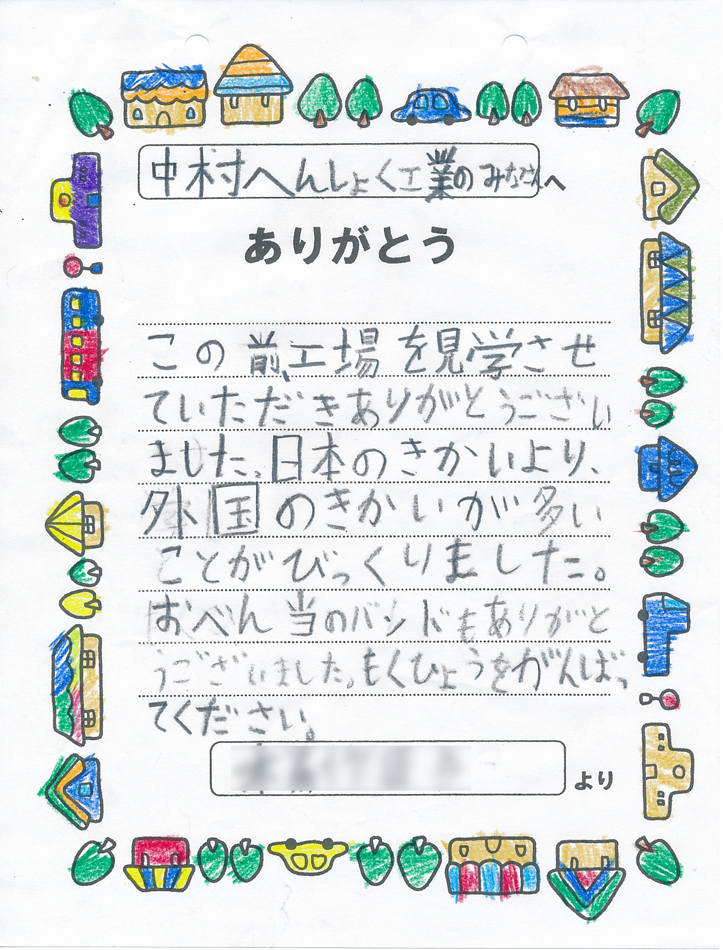 中村へんしょく工業のみなさんへ
ありがとう
この前、工場を見学させ
ていただきありがとうござい
ました。日本のきかいより、
外国のきかいが多い
ことがびっくりました。
おべん当のバンドもありがと
うございました。もくひょうをがんばっ
てください。
より